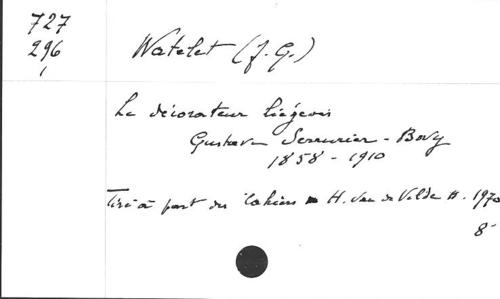 727
296
Watelet (J. G.)
Le décorateur liégeois
Gustave Serrurier-Bovy
1858-1910
Tiré à part des Cahiers H. van de Velde 11. 1970
8°